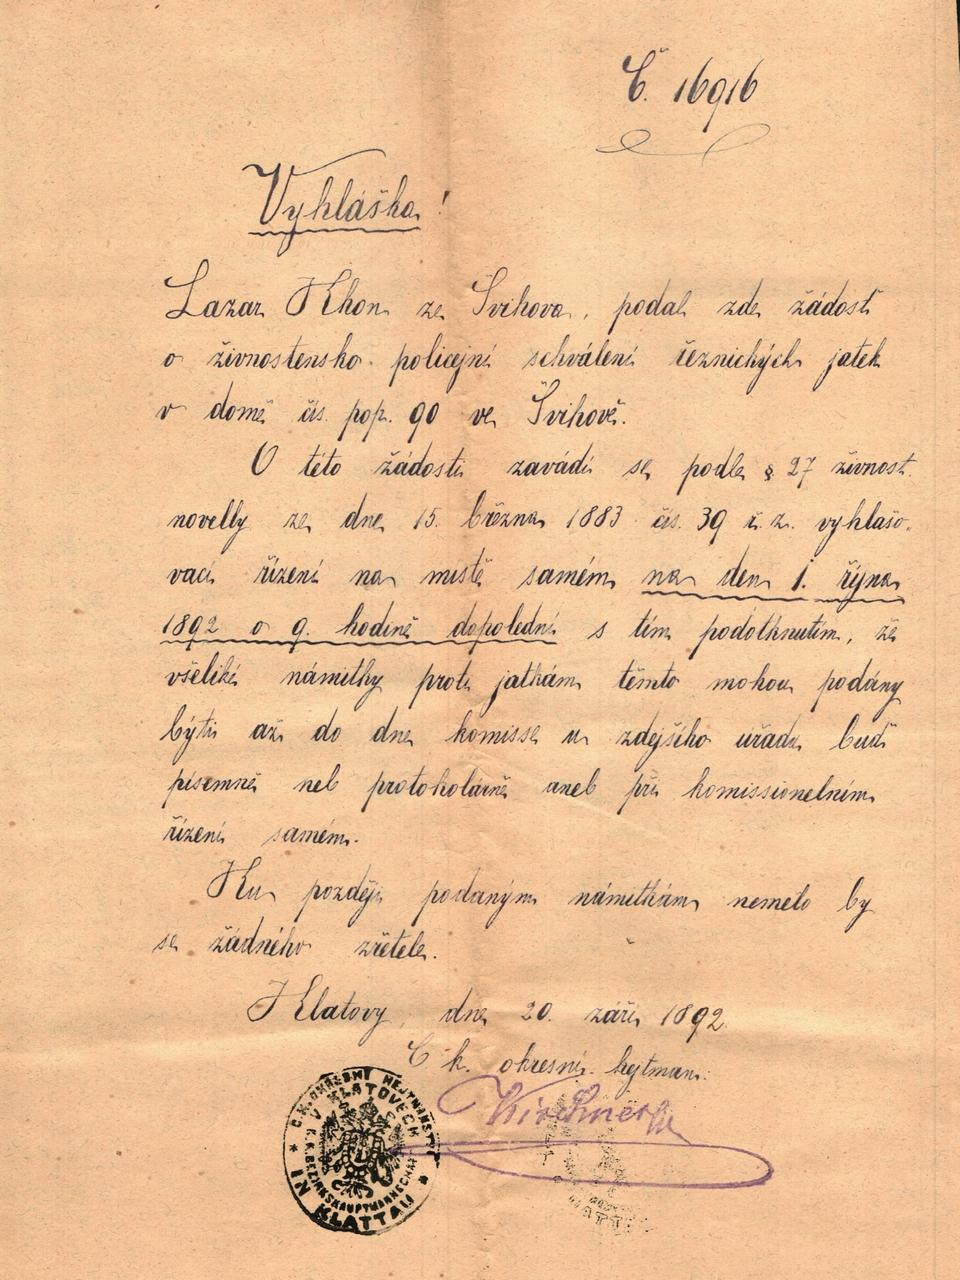 Č. 16916
Vyhláška!
Lazar Khon ze Švihova, podal zde žádosť
o živnostensko policejní schválení řeznických jatek
v domě čís. pop. 90 ve Švihově.
O této žádosti zavádí se podle § 27 živnost.
novelly ze dne 15. března 1883 čís. 39 ř. z. vyhlašo-
vací řízení na místě samém na den 1. října
1892 o 9. hodině dopolední s tím podotknutím, že
všeliké námitky proti jatkám těmto mohou podány
býti až do dne komisse u zdejšího úřadu buď
písemně neb protokolárně aneb při komissionelním
řízení samém.
Ku později podaným námitkám nemělo by
se žádného zřetele.
Klatovy, dne 20. září 1892.
C. k. okresní hejtman:
Kirchner
C.K. OKRESNÍ HEJTMANSTVÍ
V KLATOVECH
K.K. BEZIRKSHAUPTMANNSCHAFT
IN KLATTAU